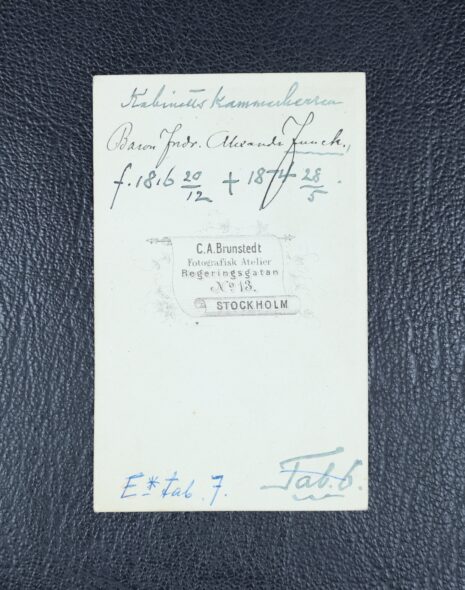 Kabinetts Kammarherren
Baron Fredr. Alexander Funck.,
f. 1816 20/12 + 1874 28/5.
C.A. Brunstedt
Fotografisk Atelier
Regeringsgatan
No 13.
STOCKHOLM
Tab. 6.
E* tab. 7.